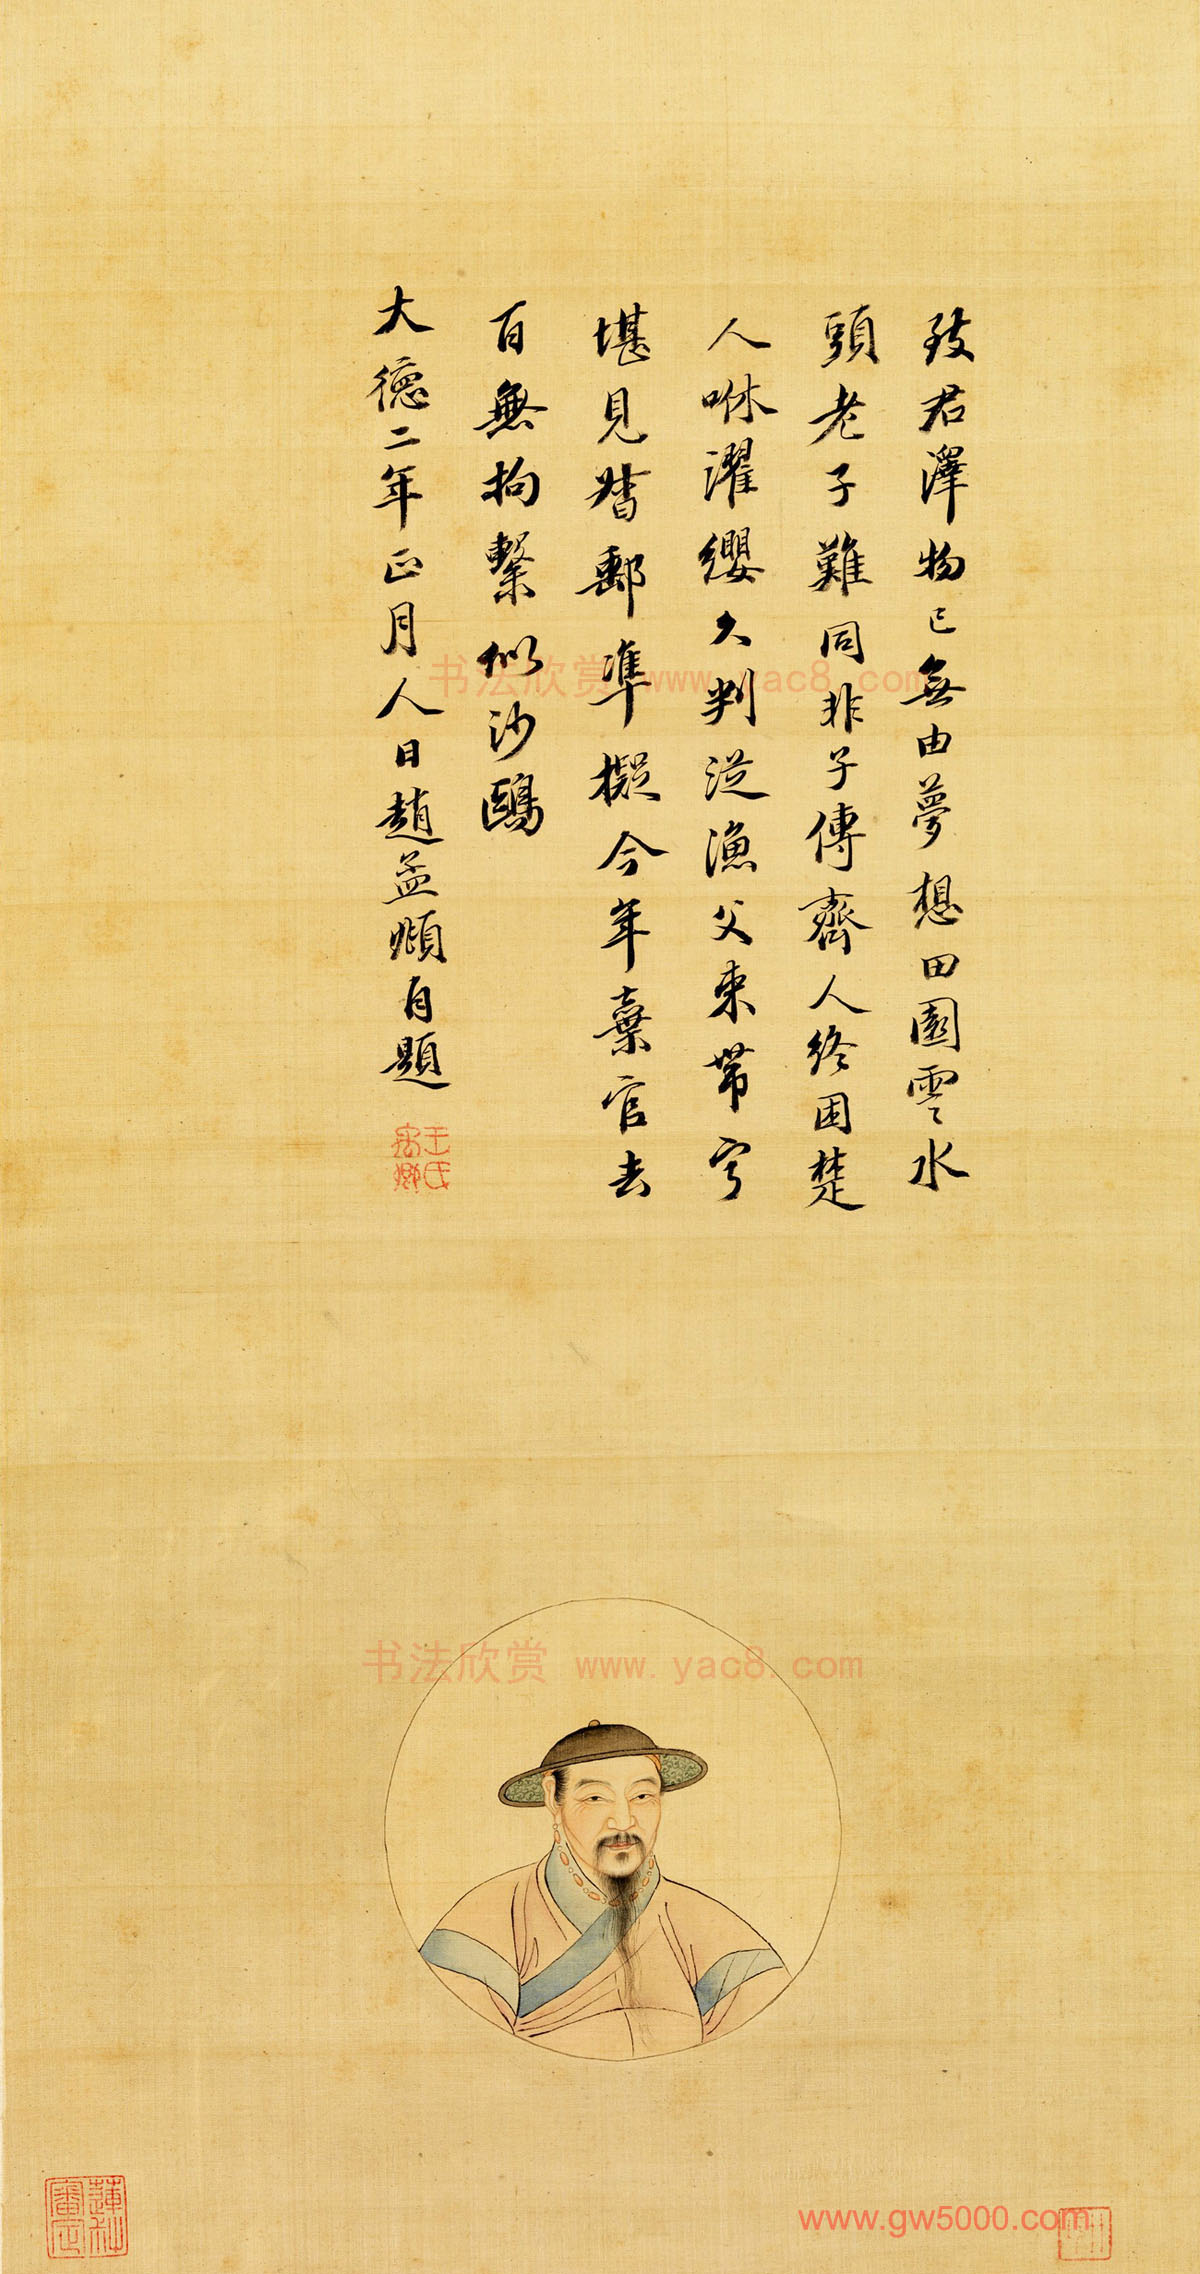 致君澤物已無由夢想田園雲水
頭老子難同非子傳齊人終困楚
人咻濯纓久判從漁父束帶寧
堪見督郵準擬今年棄官去
百無拘繫似沙鷗
大德二年正月人日趙孟頫自題
王氏禹卿
书法欣赏 www.yac8.com
书法欣赏 www.yac8.com
www.gw5000.com